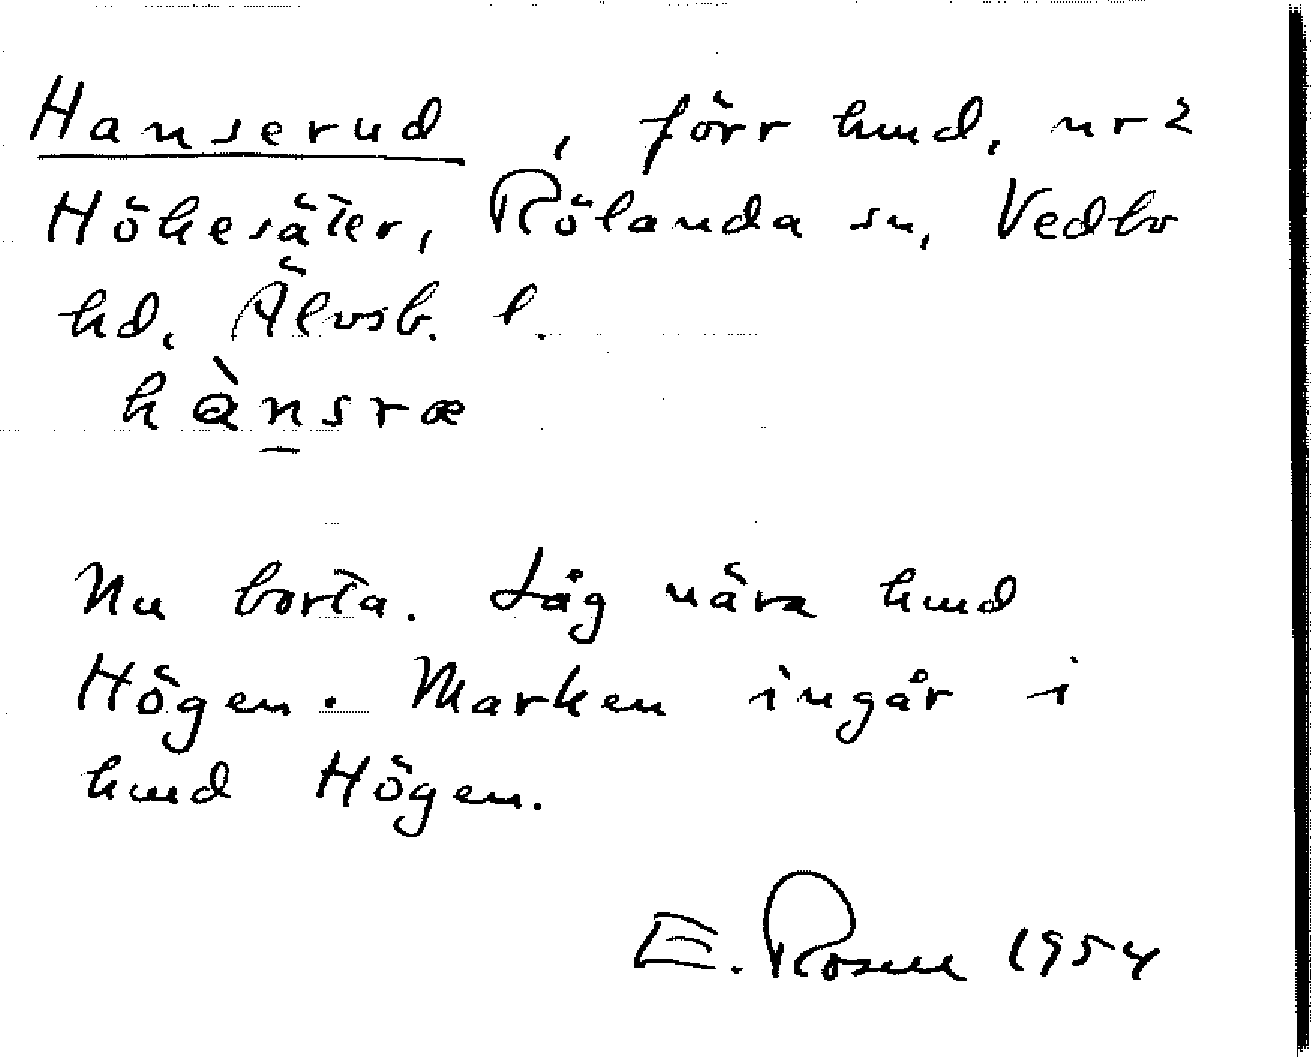 Hanserud, förr hmd, nr 2
Hökesäter, Rölanda sn, Vedbo
hd, Älvsb. l.
hànsræ
Nu borta. Låg nära hmd
Högen. Marken ingår i
hmd Högen.
E. Rosell 1954